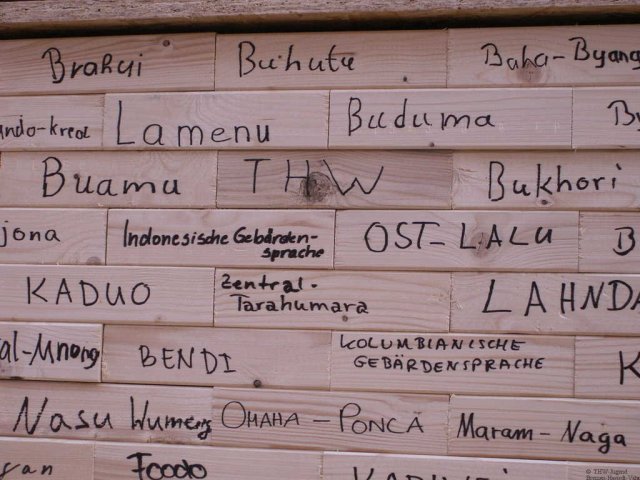 Brahui Buhutu Baha-Byang
ando-kreol Lamenu Buduma
Buamu THW Bukhori
jona Indonesische Gebärden-
sprache OST-LALU B
KADUO Zentral-
Tarahumara LAHNDA
al-Mnong BENDI KOLUMBIANISCHE
GEBÄRDENSPRACHE K
Nasu Wumeng OMAHA-PONCA Maram-Naga
Foodo
© THW-Jugend